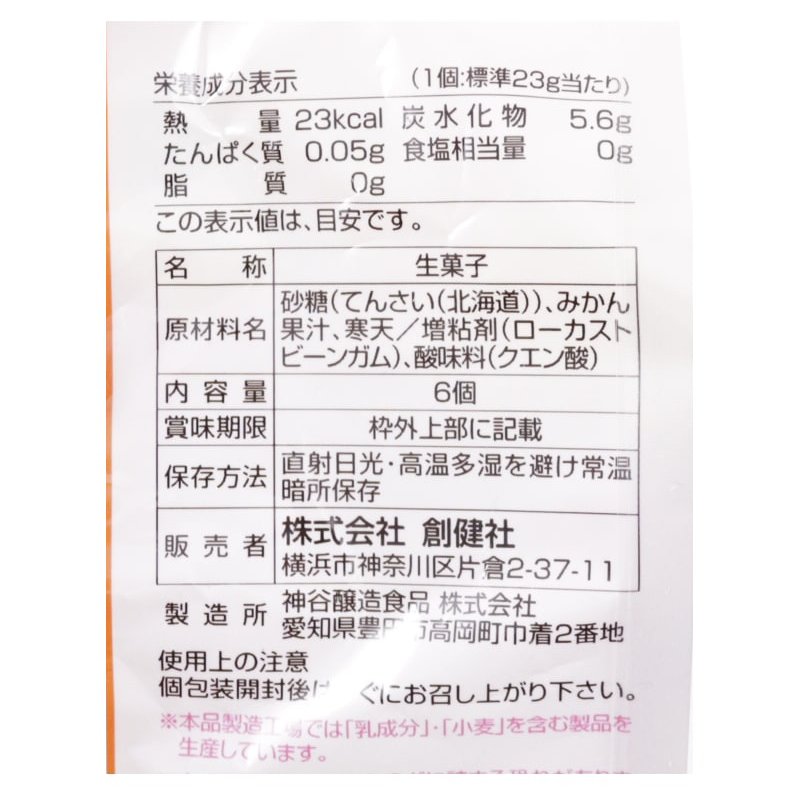 栄養成分表示 (1個:標準23g当たり)
熱量 23kcal 炭水化物 5.6g
たんぱく質 0.05g 食塩相当量 0g
脂質 0g
この表示値は、目安です。
名称 生菓子
原材料名 砂糖(てんさい(北海道))、みかん
果汁、寒天/増粘剤(ローカスト
ビーンガム)、酸味料(クエン酸)
内容量 6個
賞味期限 枠外上部に記載
保存方法 直射日光・高温多湿を避け常温
暗所保存
販売者 株式会社 創健社
横浜市神奈川区片倉2-37-11
製造所 神谷醸造食品 株式会社
愛知県豊田市高岡町巾着2番地
使用上の注意
個包装開封後は ぐにお召し上がり下さい。
※本品製造工場では「乳成分」・「小麦」を含む製品を
生産しています。